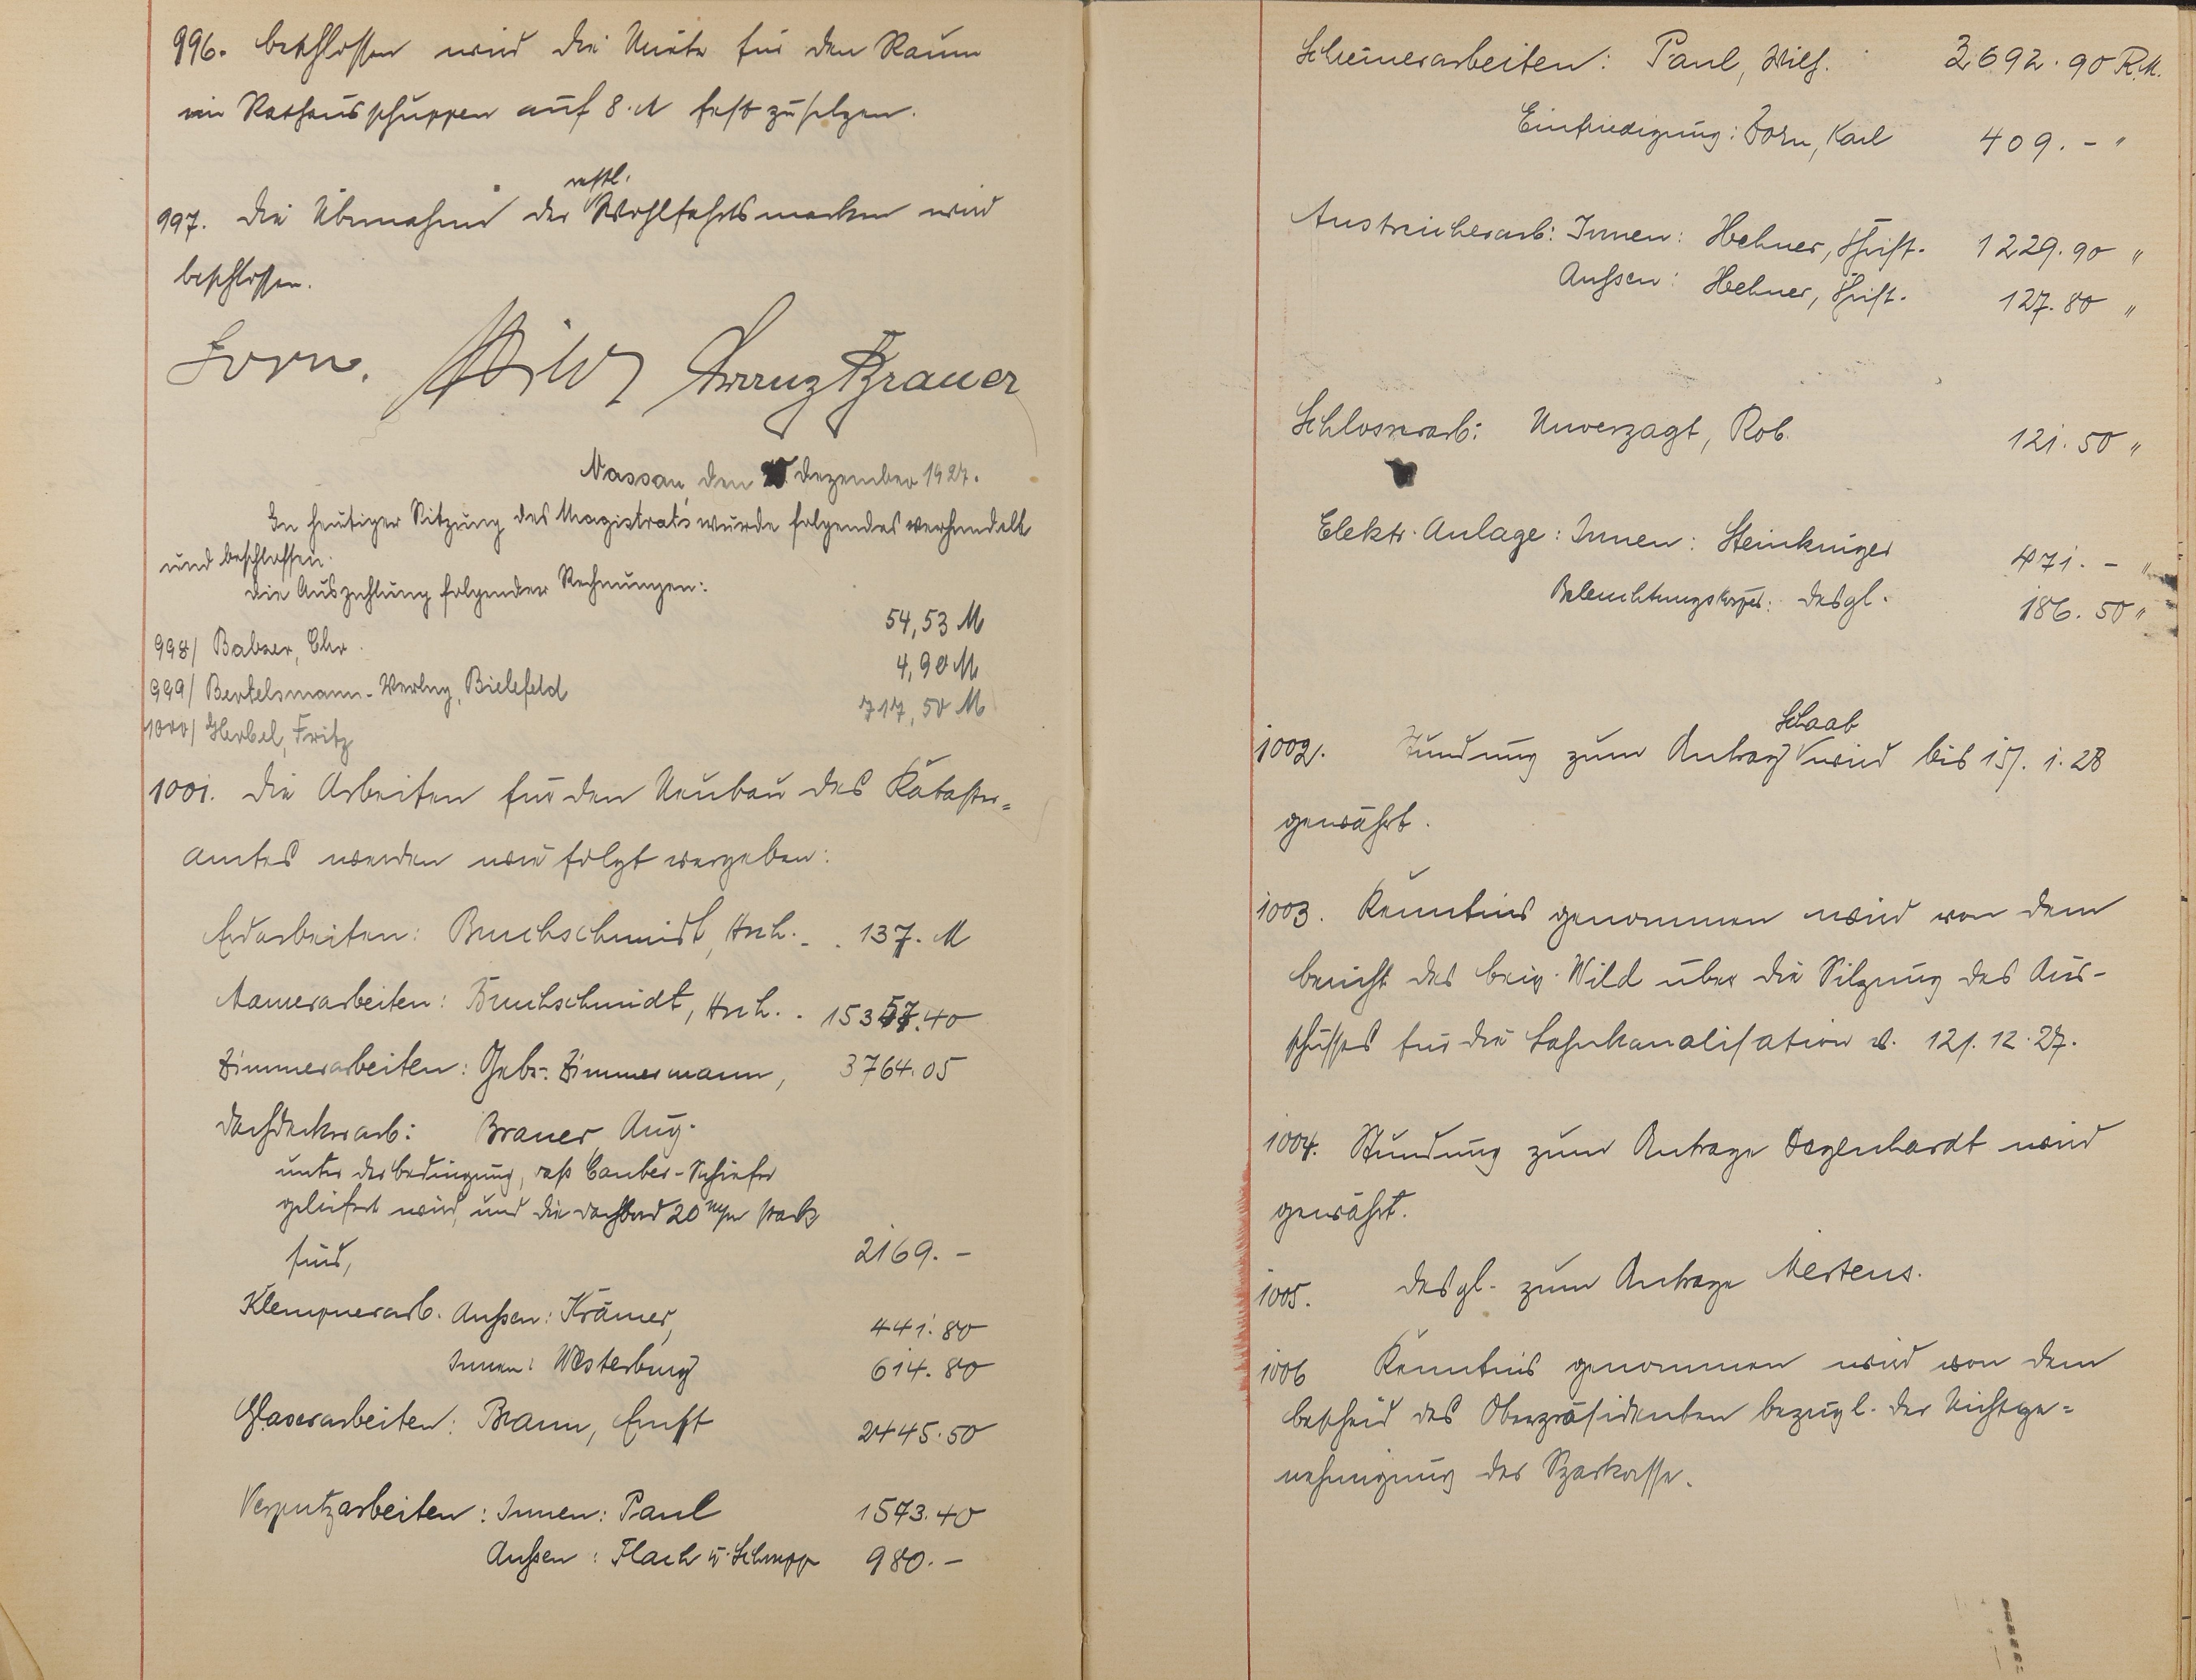 996. beschlossen wird die Miete für den Raum
im Rathausschuppen auf 8.M festzusetzen.
restl.
997. Die Übernahme der Wohlfahrtsmarken wird
beschlossen.
Franz Brauer
Nassau, den Dezember 1927.
In heutiger Sitzung des Magistrats wurde folgendes verhandelt
und beschlossen.
Die Auszahlung folgender Rechnungen:
998/ Balzer, Chr. 54,53 M
999/ Bertelsmann-Verlag, Bielefeld 4,90 M
1000/ Herbel, Fritz 717,50 M
1001. Die Arbeiten für den Neubau des Kataster=
amtes werden wie folgt vergeben:
Erdarbeiten: Buchschmidt, Hch. . 137. M
Maurerarbeiten: Buchschmidt, Hch. . 15357.40
Zimmerarbeiten: Gebr. Zimmermann, 3764.05
Dachdeckerarb: Brauer Aug.
unter der Bedingung, daß Cauber-Schiefer
geliefert wird, und die 20 m/m stark
sind, 2169.-
Klempnerarb. Außen: Krämer, 441.80
Innen: Westerburg 614.80
Glaserarbeiten: Braun, Ernst 2445.50
Verputzarbeiten: Innen: Paul 1573.40
Außen: Flach u. Schrupp 980.-
Schreinerarbeiten: Paul, Wilh. 3692.90 R.M.
Einfriedigung: Dorn, Karl 409.- "
Anstreicherarb: Innen: Hehner, Christ. 1229.90 "
Außen: Hehner, Christ. 127.80 "
Schlosserarb: Unverzagt, Rob. 121.50 "
Elektr. Anlage: Innen: Steinkrüger 471.- "
Beleuchtungskörper: desgl. 186.50 "
Schaab
1002/. Stundung zum Antrag wird bis 15/.1.28
gewährt.
1003. Kenntnis genommen wird von dem
Bericht des Beig. Wild über die Sitzung des Aus-
schusses für die Lahnkanalisation v. 12/.12.27.
1004. Stundung zum Antrage Degenhardt wird
gewährt.
1005. desgl. zum Antrage Mertens.
1006 Kenntnis genommen wird von dem
Bescheid des Oberpräsidenten bezügl. der Nichtge=
nehmigung der Sparkasse.